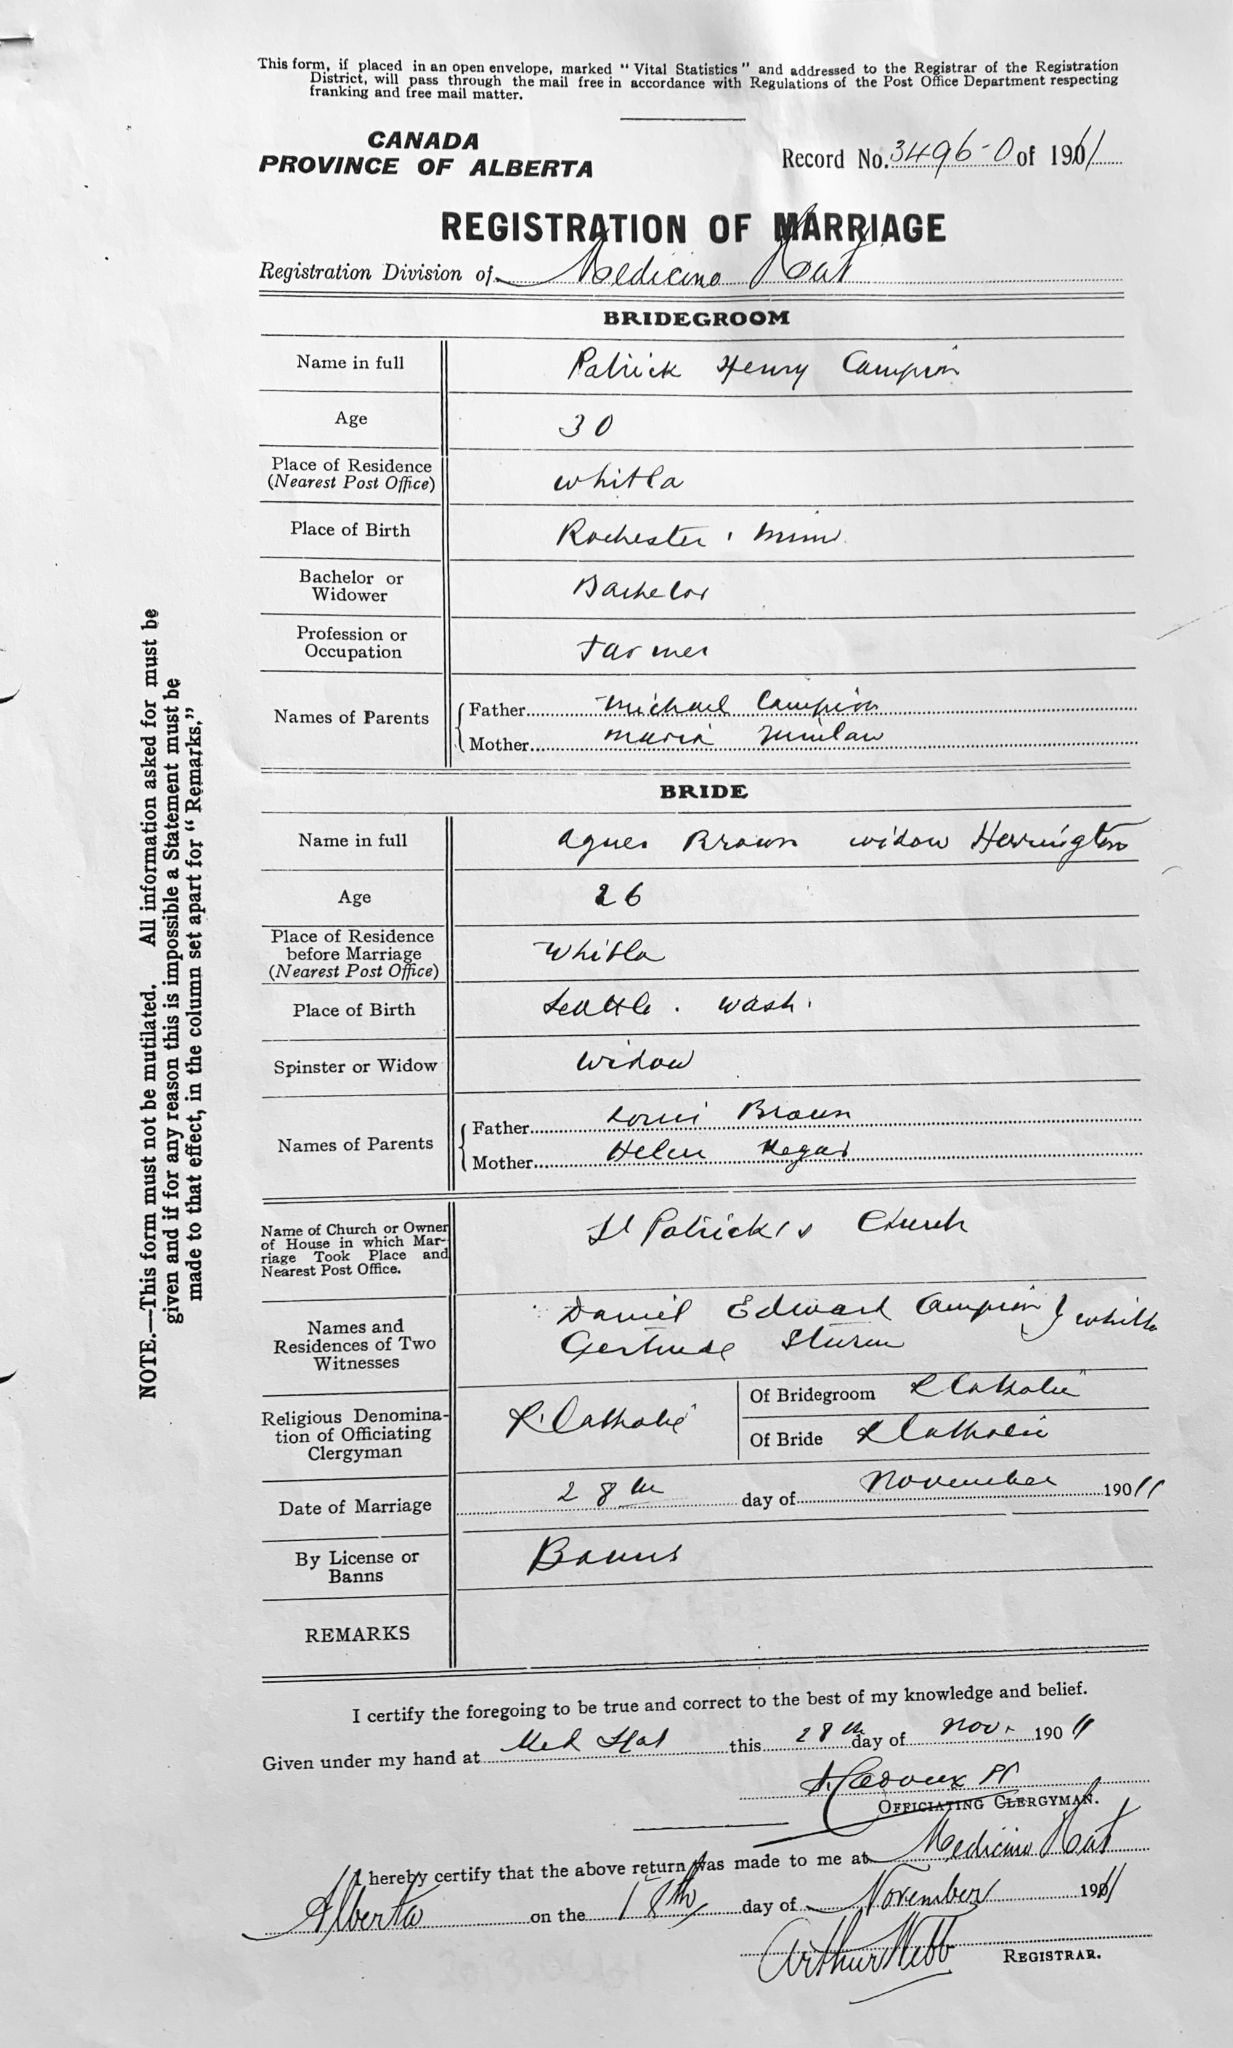 This form, if placed in an open envelope, marked “ Vital Statistics ” and addressed to the Registrar of the Registration
District, will pass through the mail free in accordance with Regulations of the Post Office Department respecting
franking and free mail matter.
CANADA
PROVINCE OF ALBERTA
Record No. 3496-0 of 1911
REGISTRATION OF MARRIAGE
Registration Division of Medicine Hat
BRIDEGROOM
Name in full Patrick Henry Campion
Age 30
Place of Residence
(Nearest Post Office) Whitla
Place of Birth Rochester, Minn.
Bachelor or
Widower Bachelor
Profession or
Occupation Farmer
Names of Parents
Father Michael Campion
Mother Maria
BRIDE
Name in full Agnes Brown widow Herrington
Age 26
Place of Residence
before Marriage
(Nearest Post Office) Whitla
Place of Birth Seattle. Wash.
Spinster or Widow Widow
Names of Parents
Father Louis Braun
Mother Helen
Name of Church or Owner
of House in which Mar-
riage Took Place and
Nearest Post Office.
St Patrick's Church
Names and
Residences of Two
Witnesses
Daniel Edward Campion } Whitla
Gertrude Sturm
Religious Denomina-
tion of Officiating
Clergyman
R. Catholic
Of Bridegroom R Catholic
Of Bride R Catholic
Date of Marriage 28th day of November 1911
By License or
Banns Banns
REMARKS
I certify the foregoing to be true and correct to the best of my knowledge and belief.
Given under my hand at Med Hat this 28th day of Nov. 1911
OFFICIATING CLERGYMAN.
I hereby certify that the above return was made to me at Medicine Hat
Alberta on the 18th day of November 1911
Arthur Webb REGISTRAR.
NOTE.—This form must not be mutilated. All information asked for must be
given and if for any reason this is impossible a Statement must be
made to that effect, in the column set apart for “ Remarks.”